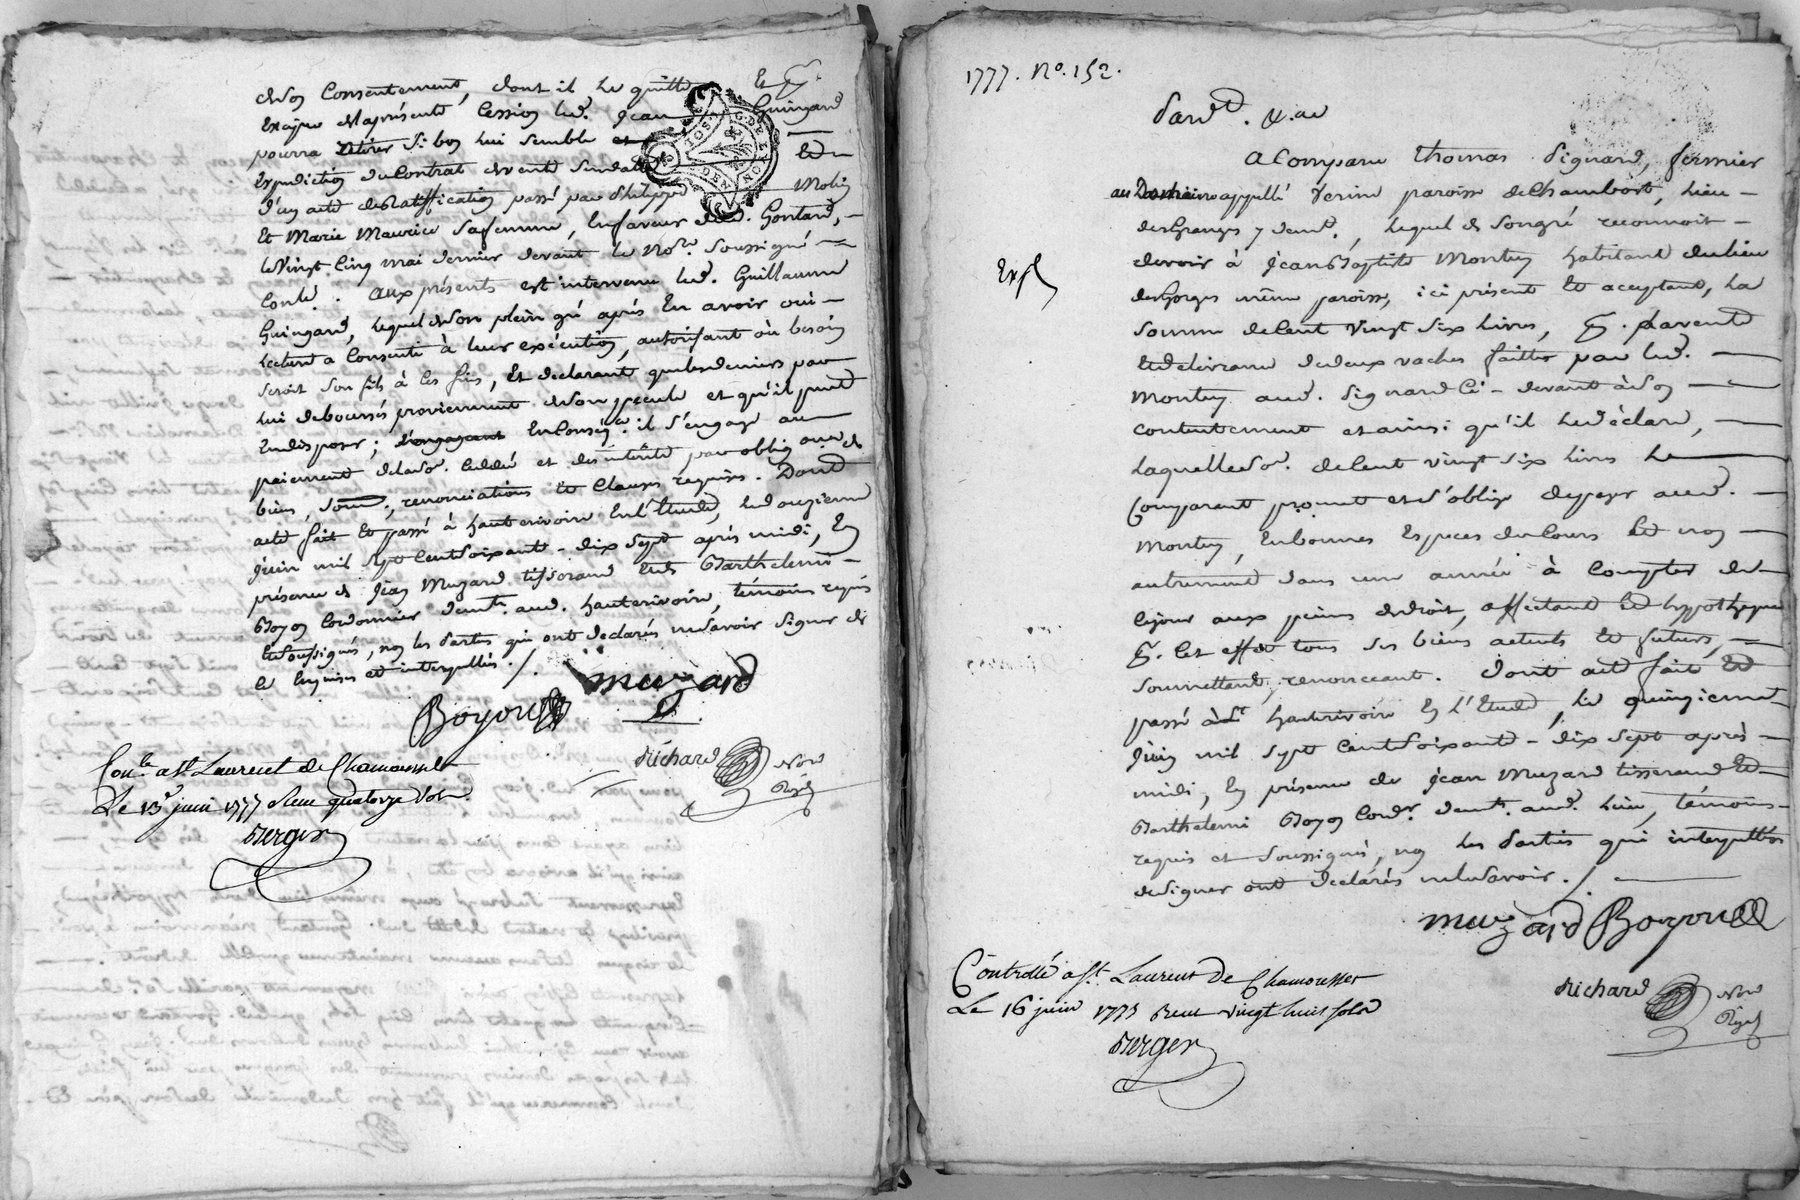 de son consentement, dont il le quitte Et &.
Et à jour de la présente Cession led. Jean Guingard
pourra retirer si bon lui semble et
Expédition du Contrat de vente Sindatté Et
d'un acte de Ratiffication passé par Philippe Molin
Et Marie Maurice sa femme, En faveur dud. Gontard,
le Vingt Cinq mai dernier devant le No.re soussigné
Conlé. aux présents est intervenu led. Guillaume
Guingard, lequel de son plein gré après En avoir oui
lecture a Consenti à leur exécution, autorisant où besoin
seroit son fils à ces fins, Et déclarant que les deniers par
lui deboursés proviennent de son pecule et qu'il peut
En disposer; En Conséq.ce il s'engage au
paiement de la so. cédée et des intérêts par oblig.on de
biens, soum., renonciations Et Clauses requises. Dont
acte fait Et passé à hauterivoire En l'Etude, le douzieme
Juin mil Sept Cent Soixante-dix sept après midi, En
présence de Jean Muzard tisserand Et de Barthelemi
Boyon Cordonnier dem.ts aud. hauterivoire, témoins requis
Et soussignés, non les Parties qui ont déclarés ne savoir signer de
ce Enquises et interpellées. /.
Boyon muzard
Richard Nore Royal
Con.lé a St Laurent de Chamousset
Le 13 juin 1777 Reçu quatorze sols.
Berger
1777. No. 152.
Pard.t &. au
A Comparu Thomas Signard, fermier
au Domaine appellé Verine paroisse de Chambost, lieu
des Granges y dem.t, lequel de son gré reconnoit
devoir à Jean Baptiste Montuy habitant du lieu
des Gorges même paroisse, ici présent Et acceptant, la
Exp.é
somme de Cent Vingt Six Livres, p. la vente
Et délivrance de deux vaches faittes par led.
Montuy aud. Signard Ci-devant à son
contentement et ainsi qu'il le déclare,
laquelle so. de Cent vingt six livres le
Comparant promet et s'oblige de payer aud.
Montuy, En bonnes Espèces du Cours Et non
autrement dans une année à Compter de
ce jour aux peines de droit, affectant Et hypothequant
p. Cet effet tous ses biens actuels Et futurs,
soumettant, renonceant. Dont acte fait Et
passé à d.t hauterivoire En l'Etude, le quinzieme
Juin mil Sept Cent Soixante-dix sept après
midi, En présence de Jean Muzard tisserand Et
Barthelemi Boyon Cord.r dem.ts aud. lieu, témoins
requis et soussignés, non les Parties qui interpellées
de signer ont déclarés ne le savoir. /.
muzard Boyon
Richard Nore Royal
Controllé a St. Laurent De Chamousset
Le 16 juin 1777 Reçu vingt huit sols
Berger